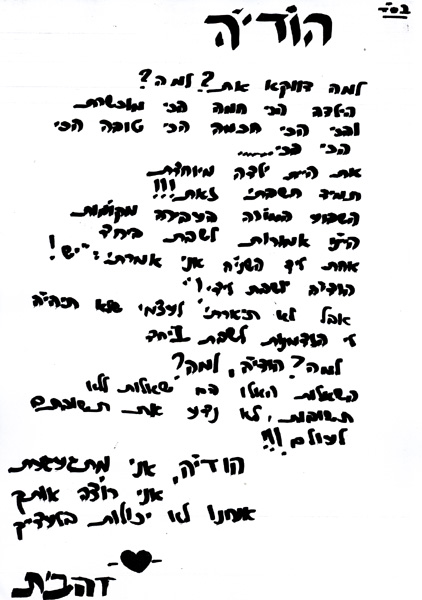 בס"ד
הודיה
למה דווקא את? למה?
הילדה הכי חמה הכי מוכשרת
והכי הכי חכמה הכי טובה הכי
הכי הכי......
את היית ילדה מיוחדת
תמיד חשבתי זאת!!!
השבוע המורה העבירה מקומות
היינו אמורות לשבת ביחד
אחת ליד השניה אני אמרתי: "יש!
הודיה תשב לידי!"
אבל לא תיארתי לעצמי שלא תהיה
לי הזדמנות לשבת ביחד
למה? הודיה, למה?
השאלות האלו הם שאלות ללא
תשובות, לא נדע את תשובתם
לעולם!!!
הודיה, אני מתגעגעת
אני רוצה אותך
אנחנו לא יכולות בלעדיך